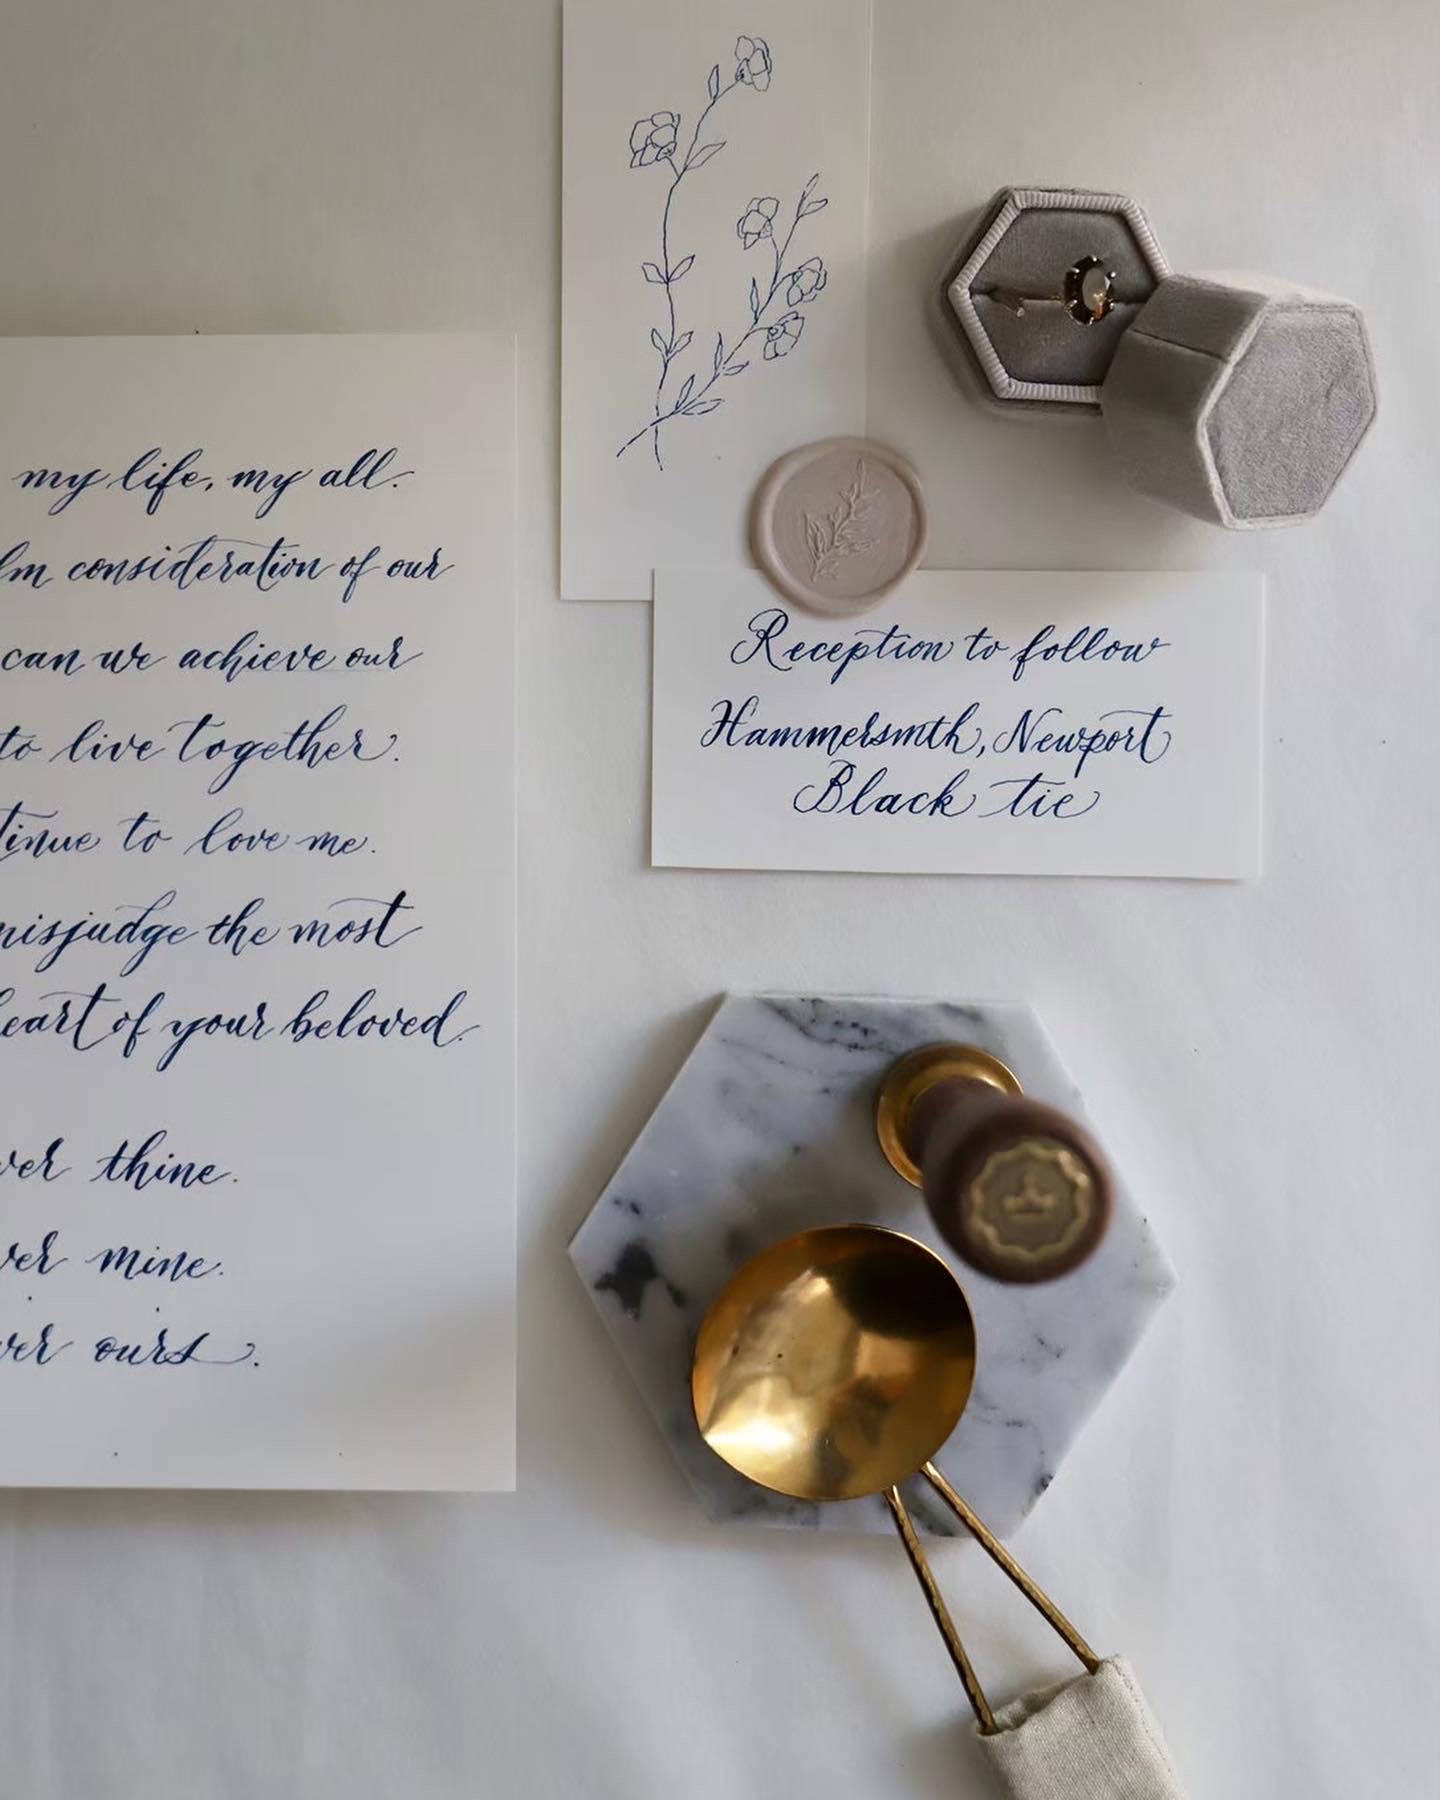 my life, my all.
lm consideration of our
can we achieve our
to live together.
tinue to love me.
misjudge the most
heart of your beloved.
ver thine.
ver mine.
ver ours.
Reception to follow
Hammersmth, Newport
Black tie